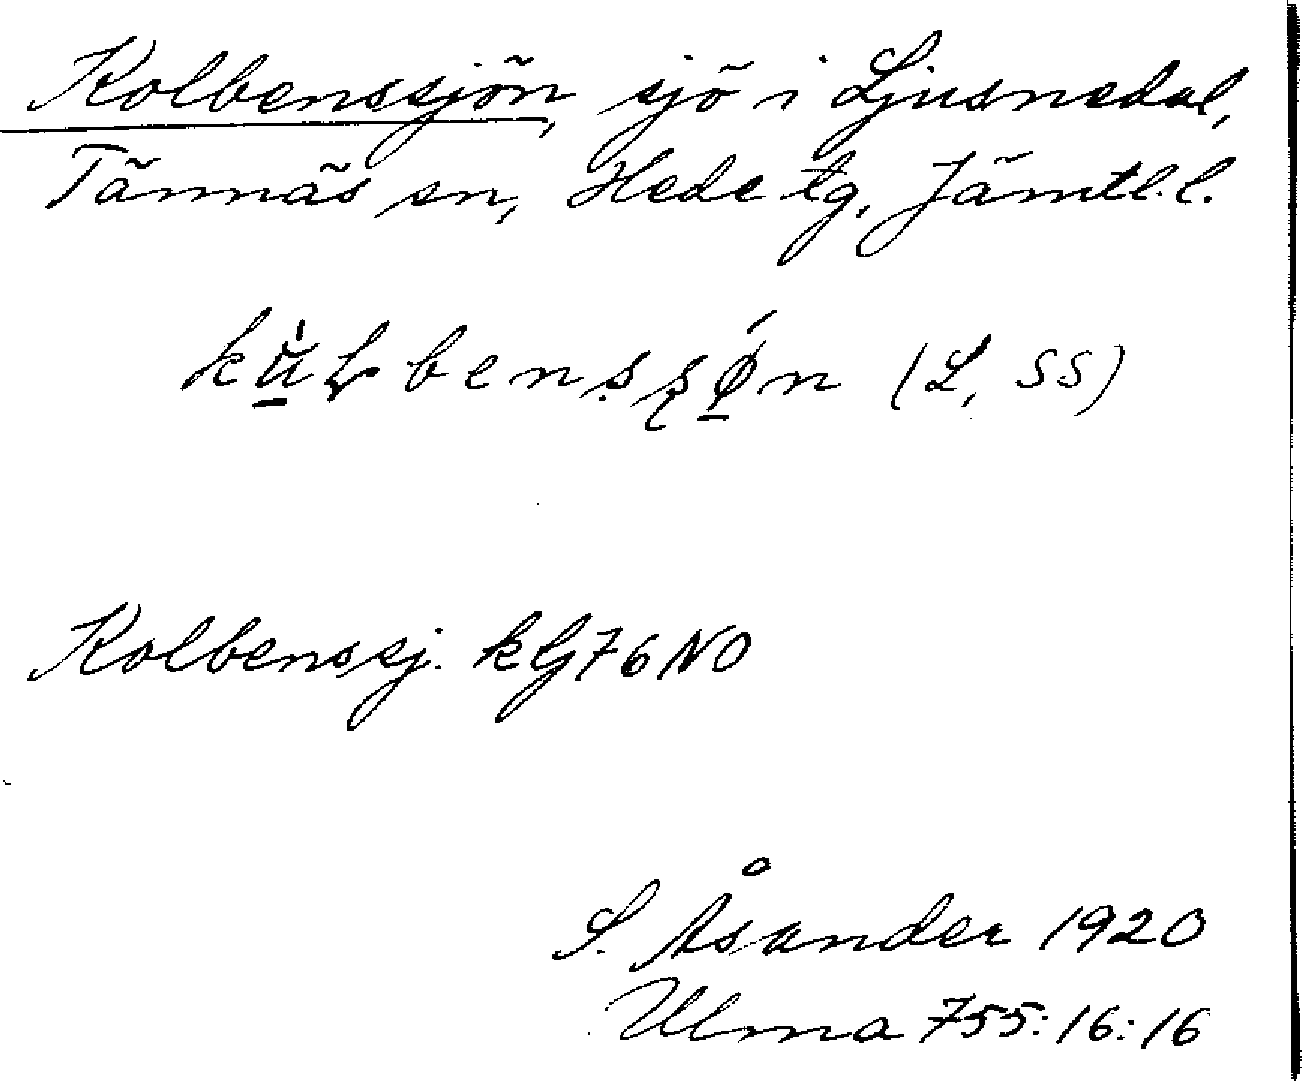 Kolbenssjön, sjö i Ljusnedal,
Tännäs sn, Hede tg, Jämtl. l.
(L, SS)
Kolbenssj. kG76NO
S. Åsander 1920
Ulma 755:16:16